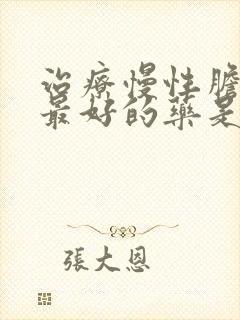 治療慢性膽
最好的藥是
張大恩